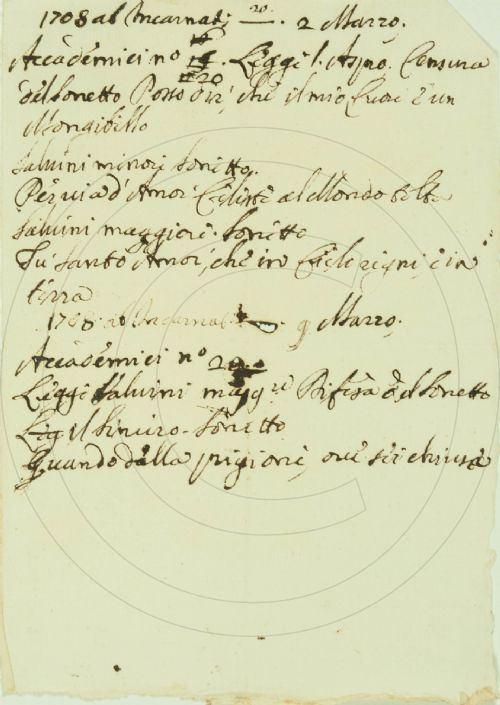 1708 al Incarnat. 20 . 2 Marzo.
Accademici nº 20. Leggi l. Aspro. Censura
del sonetto Posso dir, che il mio Cuor è un
Mongibello
Salvini minore sonetto.
Per via d'Amor Celeste al Mondo tolta
Salvini maggiore. sonetto
Tu santo Amor, che in Cielo regni, e in
terra
1708 al Incarnat. 9 Marzo.
Accademici nº 20
Leggi Salvini magg.re Difesa del sonetto
Legg il sonetto
Quando dalla prigione, ove sei chiusa